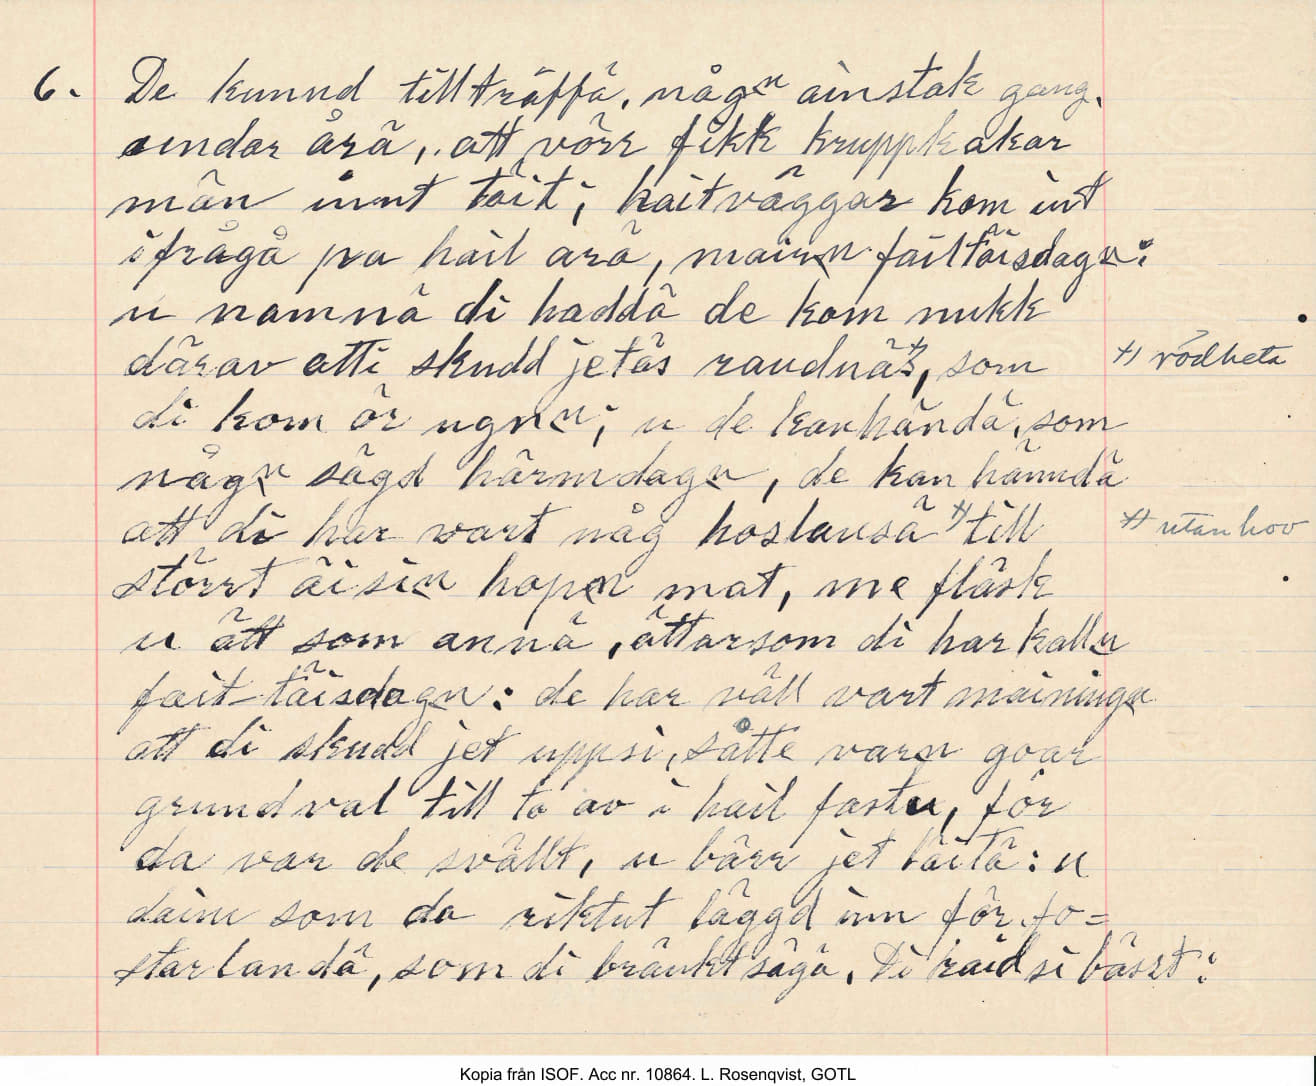 6. De kunnd tillträffä, någen ainstak gang,
undar årä, att vörr fikk kruppkakar
män innt täit; haitväggar kom int
ifrågå pa hail arä, mairen faittäisdagen:
u namnä di haddä de kom nukk
därav atti skudd jetäs raudnä +), som +) rödheta
di kom ör ugnen; u de kanhändä, som
någen sägd härmdagen, de kan hänndä
att di har vart någ hoslausä +) till +) utan hov
störrt äi sin hopen mat, me fläsk
u ätt som annä, ättarsom di har kallen
fait-täisdagen: de har väll vart mainingen
att di skudd jet uppsi, såtte varen goar
grundval till ta av i hail fastu, för
da var de svällt, u bärr jet läitä: u
daim som da riktut läggd inn för fo=
starlandä, som di bräukt sägä. Di raid si bässt:
Kopia från ISOF. Acc nr. 10864. L. Rosenqvist, GOTL